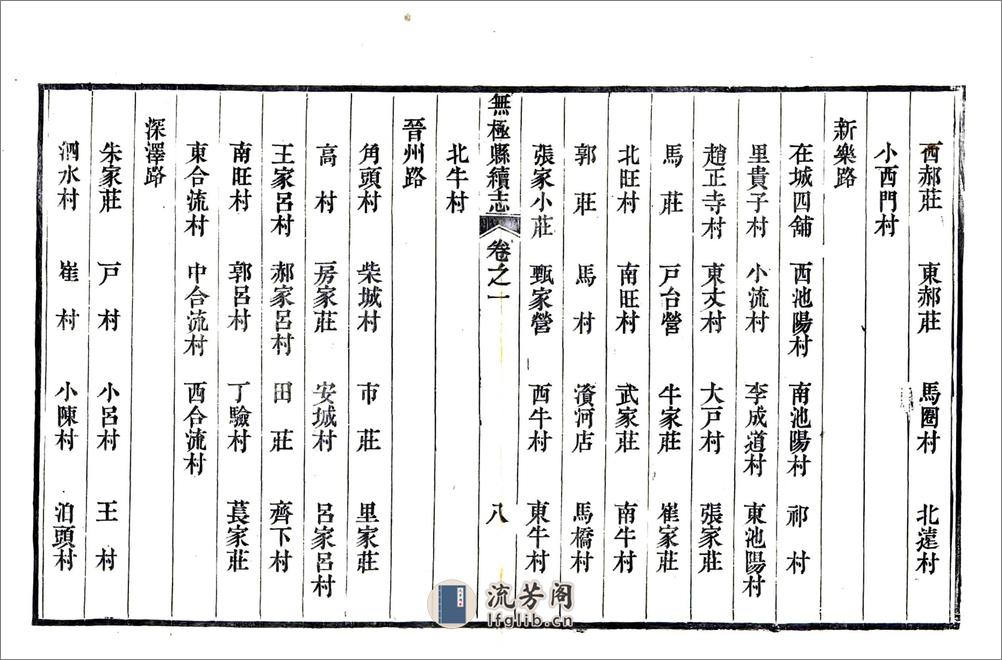 西郝莊　東郝莊　馬圈村　北遠村
小西門村
新樂路
在城四舖　西池陽村　南池陽村　祁村
里貴子村　小流村　李成道村　東池陽村
趙正寺村　東丈村　大戸村　張家莊
馬莊　戸台營　牛家莊　崔家莊
北旺村　南旺村　武家莊　南牛村
郭莊　馬村　濱河店　馬橋村
張家小莊　甄家營　西牛村　東牛村
無極縣續志　卷之一　八
北牛村
晉州路
角頭村　柴城村　市莊　里家莊
高村　房家莊　安城村　呂家呂村
王家呂村　郝家呂村　田莊　齊下村
南旺村　郭呂村　丁驗村　萇家莊
東合流村　中合流村　西合流村
深澤路
朱家莊　戸村　小呂村　王村
泗水村　崔村　小陳村　泊頭村
流芳阁
lfglib.cn